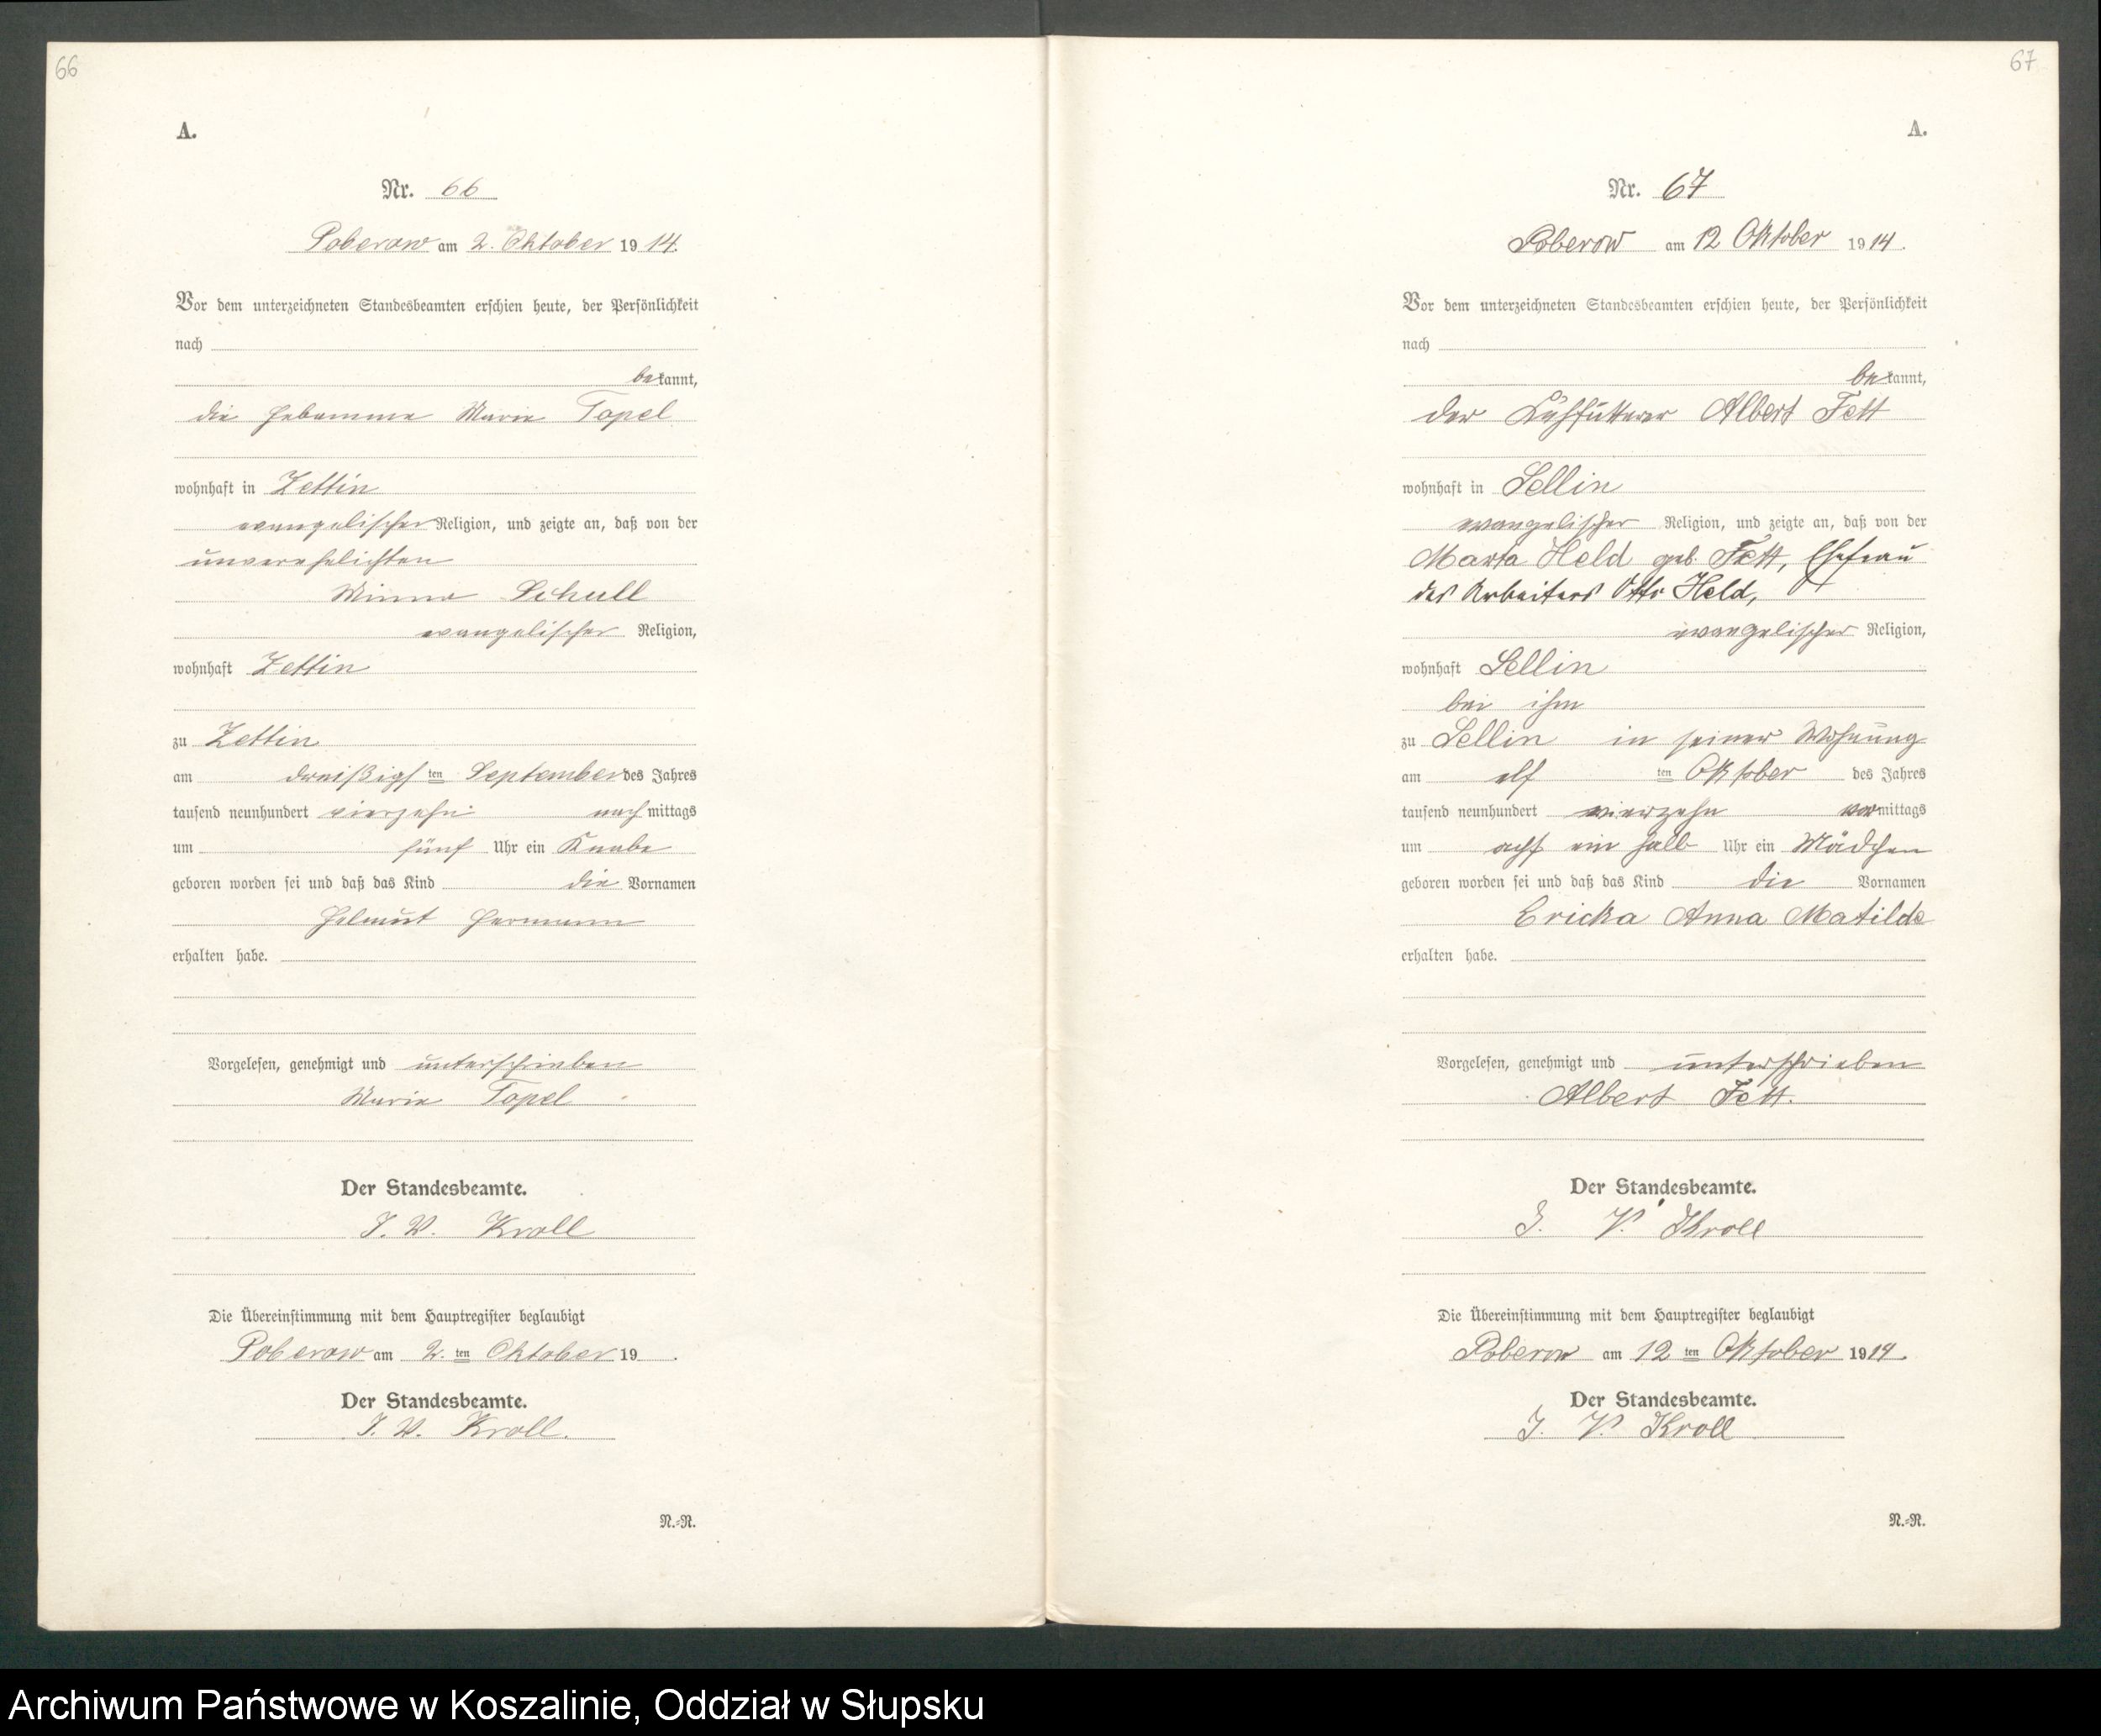 66
A.
Nr. 66
Poberow am 2. Oktober 19 14.
Vor dem unterzeichneten Standesbeamten erschien heute, der Persönlichkeit
nach
bekannt,
die Hebamme Marie Topel
wohnhaft in Zettin
evangelischer Religion, und zeigte an, daß von der
unverehelichten
Minna Schull
evangelischer Religion,
wohnhaft Zettin
zu Zettin
am dreißigsten September des Jahres
tausend neunhundert vierzehn nachmittags
um fünf Uhr ein Knabe
geboren worden sei und daß das Kind die Vornamen
Helmut Hermann
erhalten habe.
Vorgelesen, genehmigt und unterschrieben
Marie Topel
Der Standesbeamte.
J. V. Kroll
Die Übereinstimmung mit dem Hauptregister beglaubigt
Poberow am 2. ten Oktober 19 .
Der Standesbeamte.
J. V. Kroll.
N.-R.
67
A.
Nr. 67
Poberow am 12 Oktober 19 14.
Vor dem unterzeichneten Standesbeamten erschien heute, der Persönlichkeit
nach
bekannt,
der Kuhfütterer Albert Fett
wohnhaft in Sellin
evangelischer Religion, und zeigte an, daß von der
Marta Held geb. Fett, Ehefrau
des Arbeiters Otto Held,
evangelischer Religion,
wohnhaft Sellin
bei ihm
zu Sellin in seiner Wohnung
am elf ten Oktober des Jahres
tausend neunhundert vierzehn vormittags
um acht ein halb Uhr ein Mädchen
geboren worden sei und daß das Kind die Vornamen
Ericka Anna Matilde
erhalten habe.
Vorgelesen, genehmigt und unterschrieben
Albert Fett.
Der Standesbeamte.
J. V. Kroll
Die Übereinstimmung mit dem Hauptregister beglaubigt
Poberow am 12 ten Oktober 19 14.
Der Standesbeamte.
J. V. Kroll
N.-R.
Archiwum Państwowe w Koszalinie, Oddział w Słupsku